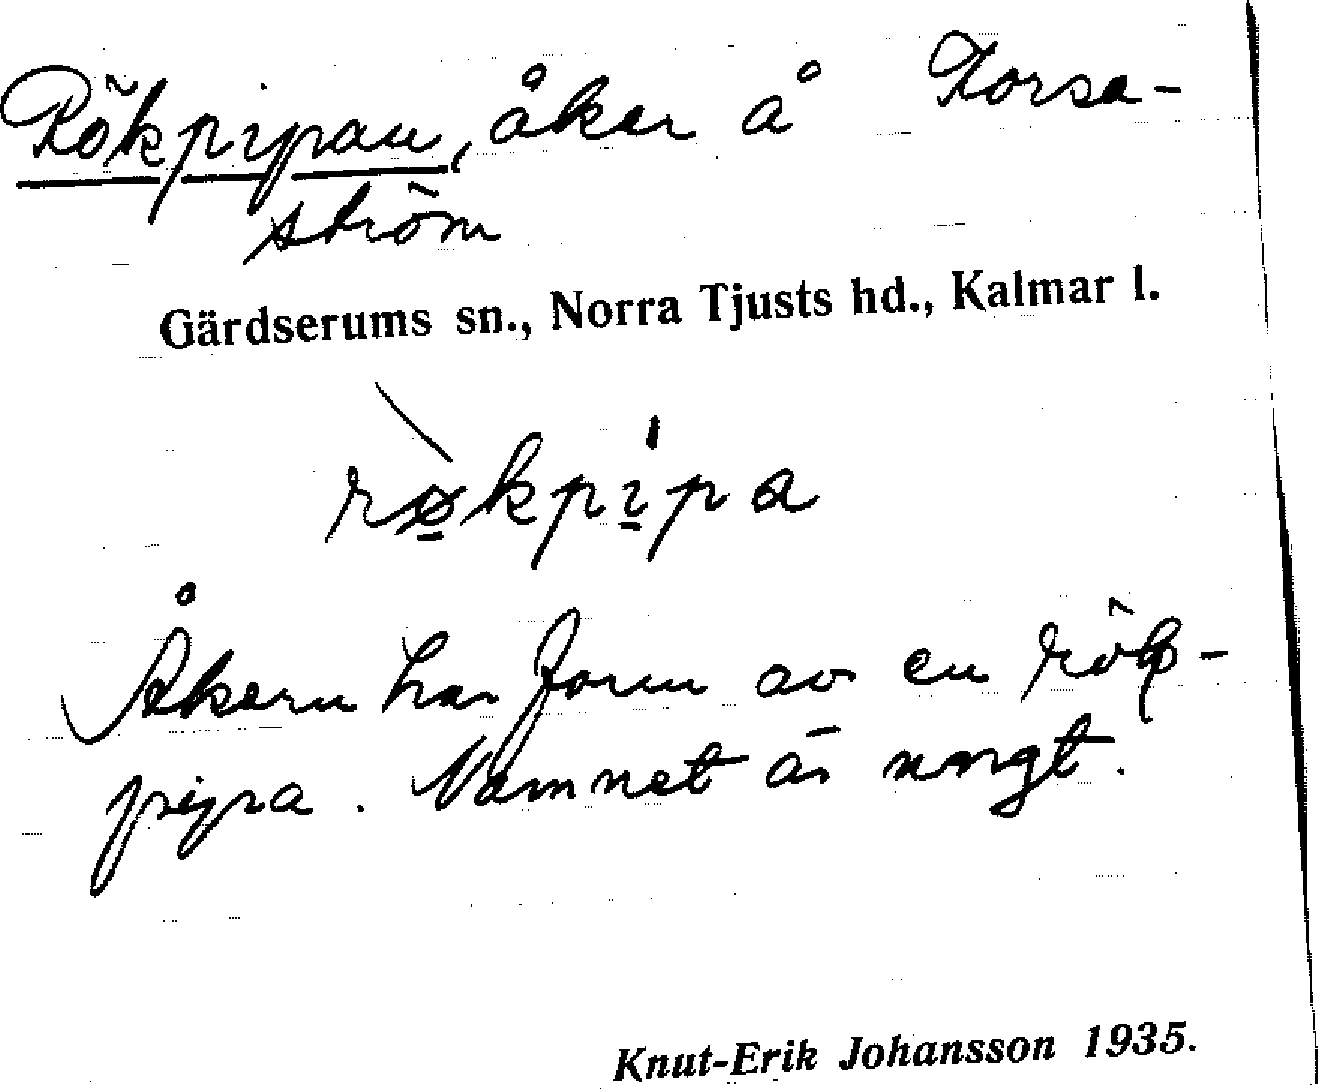 Rökpipan, åker å Korsa-
ström
Gärdserums sn., Norra Tjusts hd., Kalmar l.
rø̱kpi̱pa
Åkern har form av en rök-
pipa. Namnet är ungt.
Knut-Erik Johansson 1935.